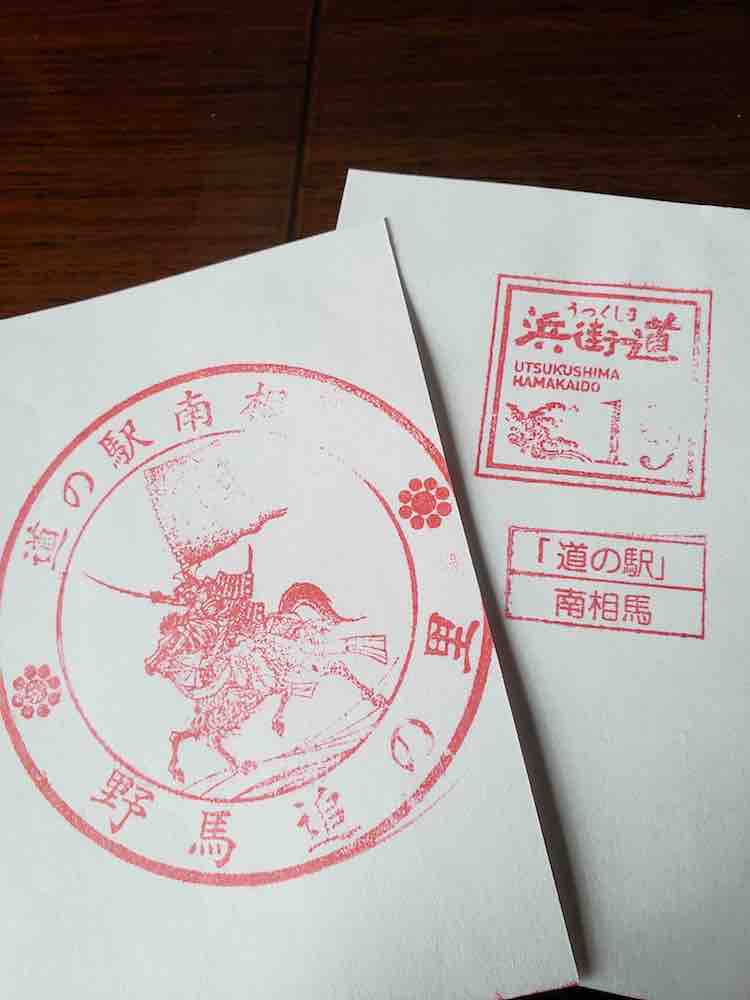 道の駅南相
野馬追の里
うつくしま
浜街道
UTSUKUSHIMA
HAMAKAIDO
「道の駅」
南相馬